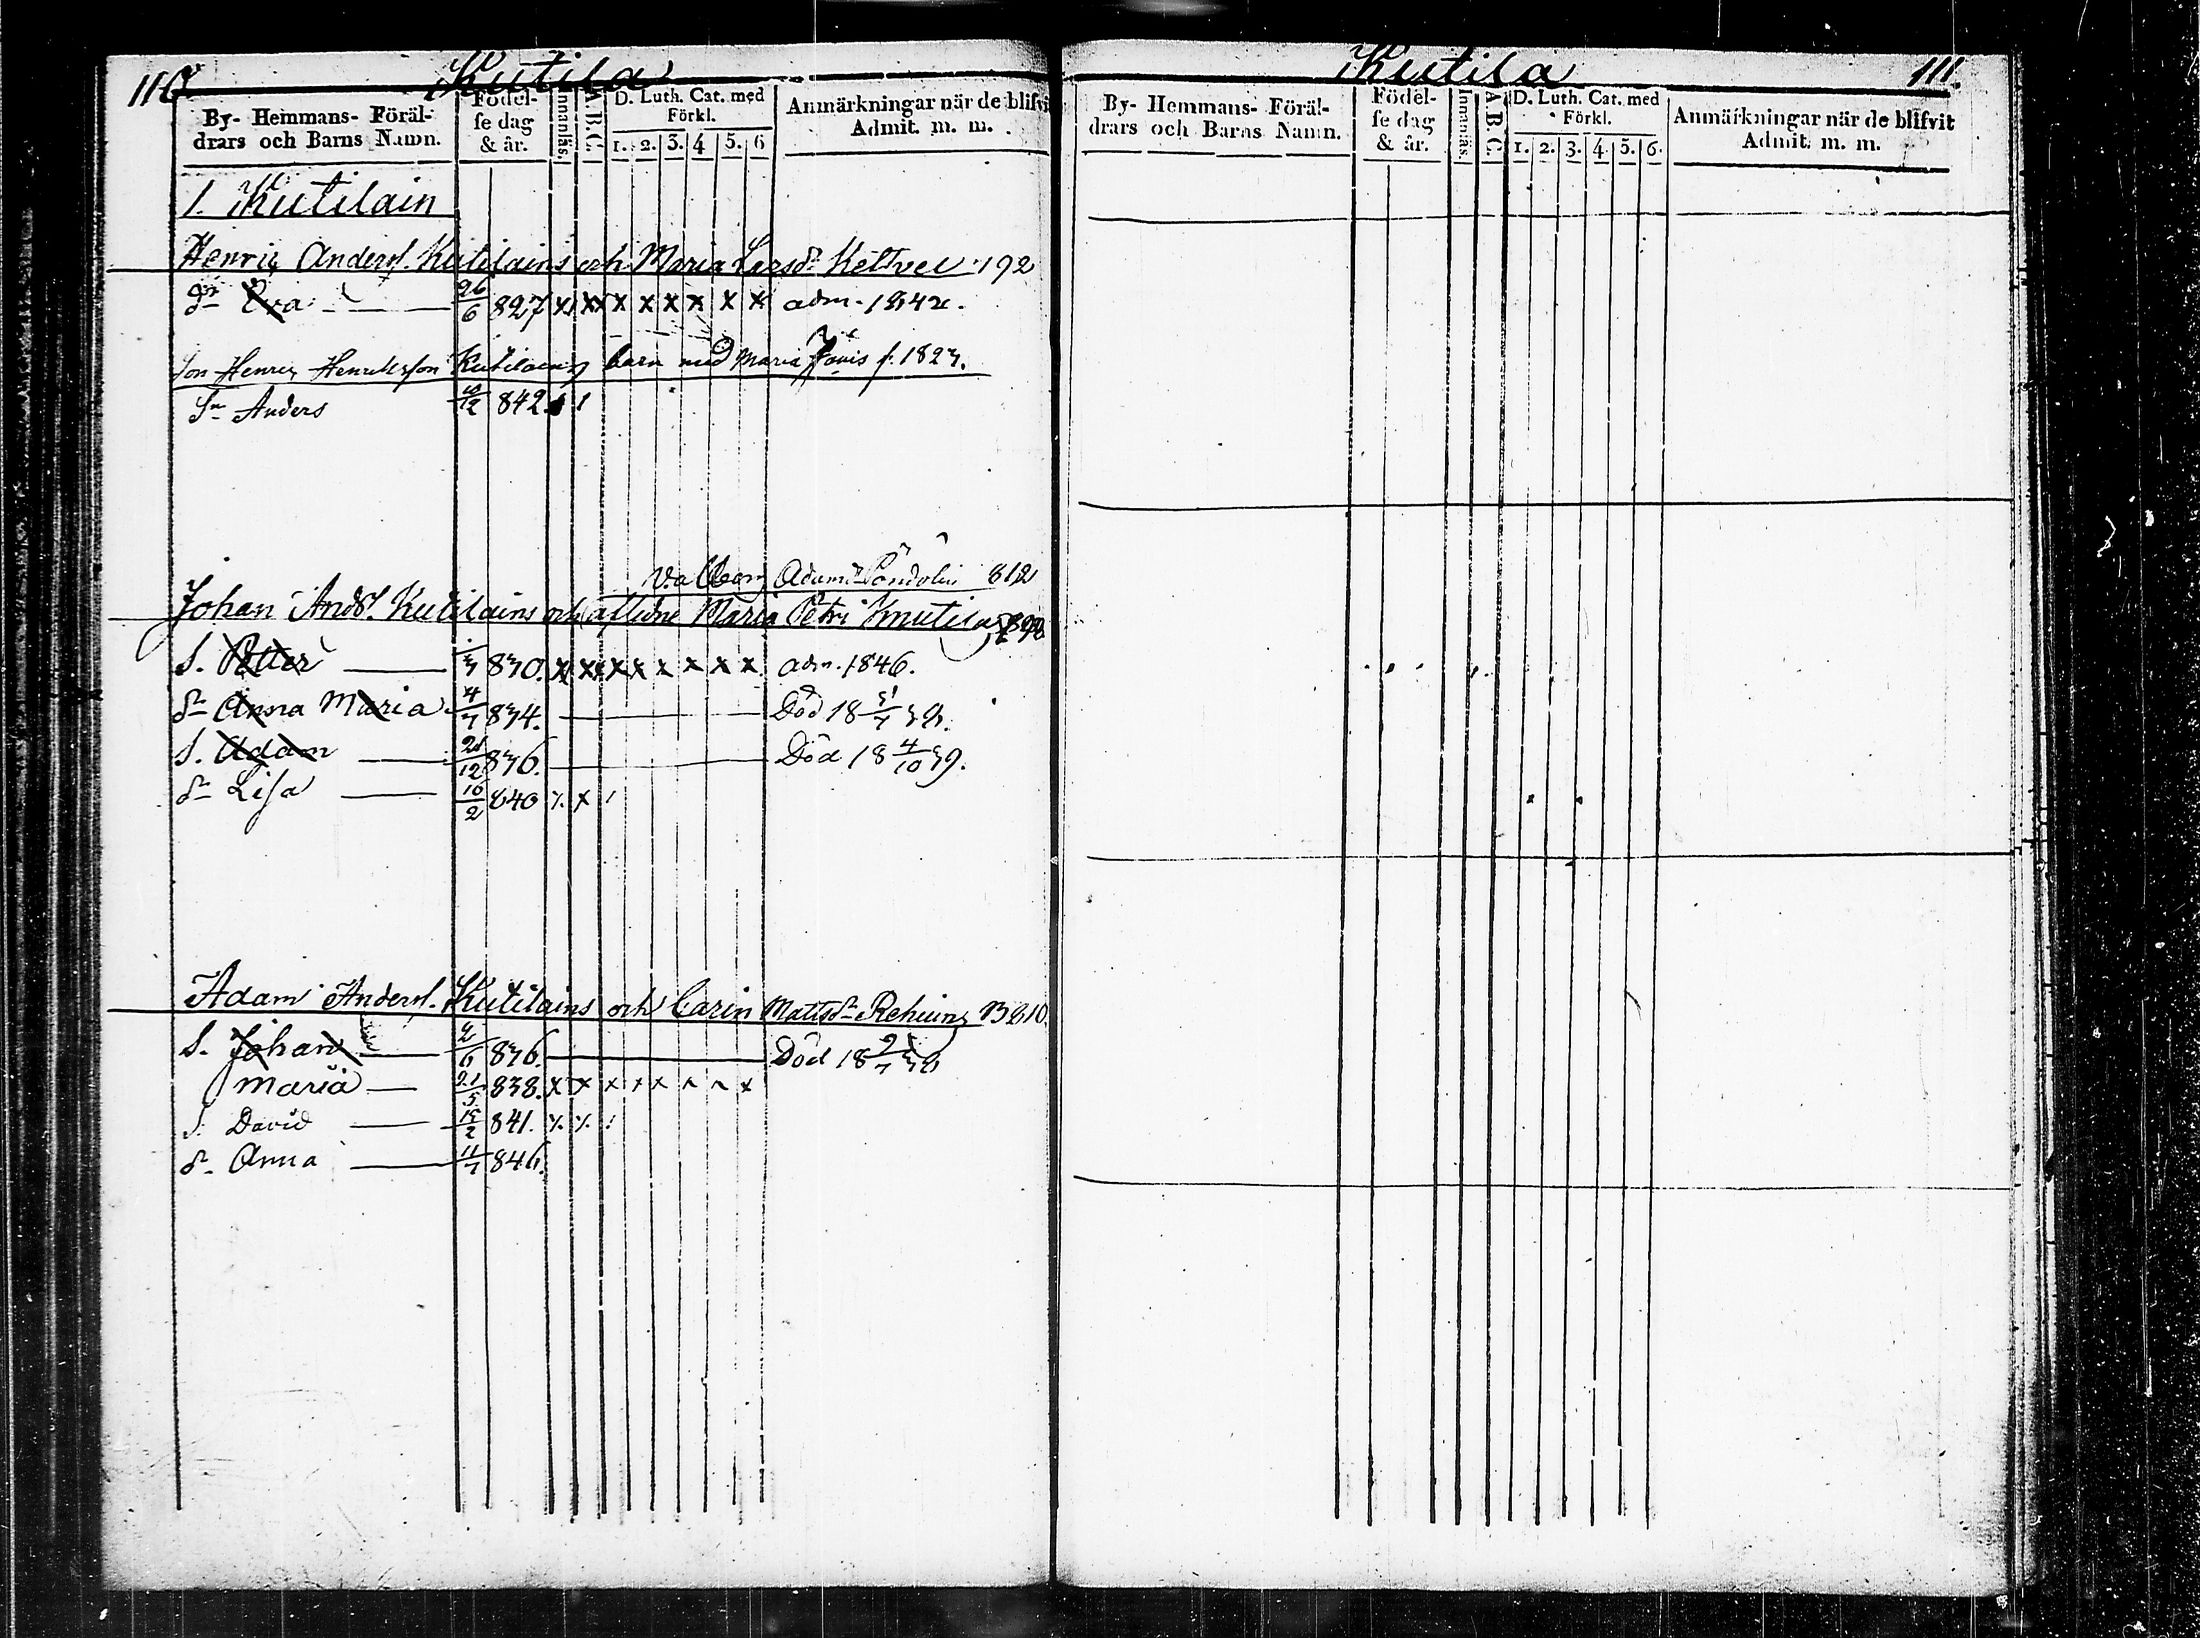 110 Kutila
By- Hemmans- Föräl-
drars och Barns Namn.
Födel-
se dag
& år.
Innanläs.
A.B.C.
D. Luth. Cat. med
Förkl.
1. 2. 3. 4 5. 6
Anmärkningar när de blifvi
Admit. m. m.
1. Kutilain
Henric Anders. Kutilains och Maria Larsdr 192
dr Eva 26/6 827 x xx x x x x x x adm. 1842.
Son Henric Henriksson Kutilains barn med Maria f. 1823.
Sn Anders 842
Valborg Adamsdr 812
Johan Ands. Kutilains och aflidne Maria Petri
S. Petter 830. x xx x x x x x x adm. 1846.
dr Anna Maria 4/7 834. Död 18
S. Adam 21/12 836. Död 18 4/10 39.
dr Lisa 16/2 840 x x
Adam Anders. Kutilains och Carin Matsdr 810.
S. Johan 2/6 836. Död 18
Maria 21/5 838. x x x x x x x x
S. David 841.
dr Anna 11/7 846.
Kutila 111.
By- Hemmans- Föräl-
drars och Barns Namn.
Födel-
se dag
& år.
Innanläs.
A.B.C.
D. Luth. Cat. med
Förkl.
1. 2. 3. 4. 5. 6.
Anmärkningar när de blifvit
Admit. m. m.